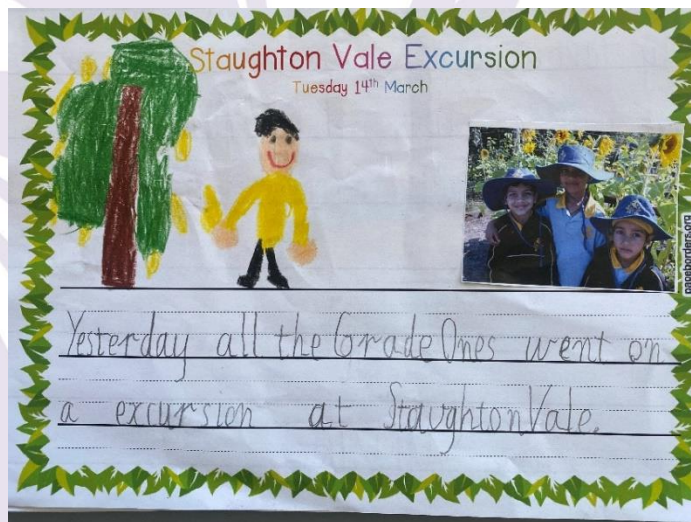 Staughton Vale Excursion
Tuesday 14th March
pageborders.org
Yesterday all the Grade Ones went on
a excursion at Staughton Vale.